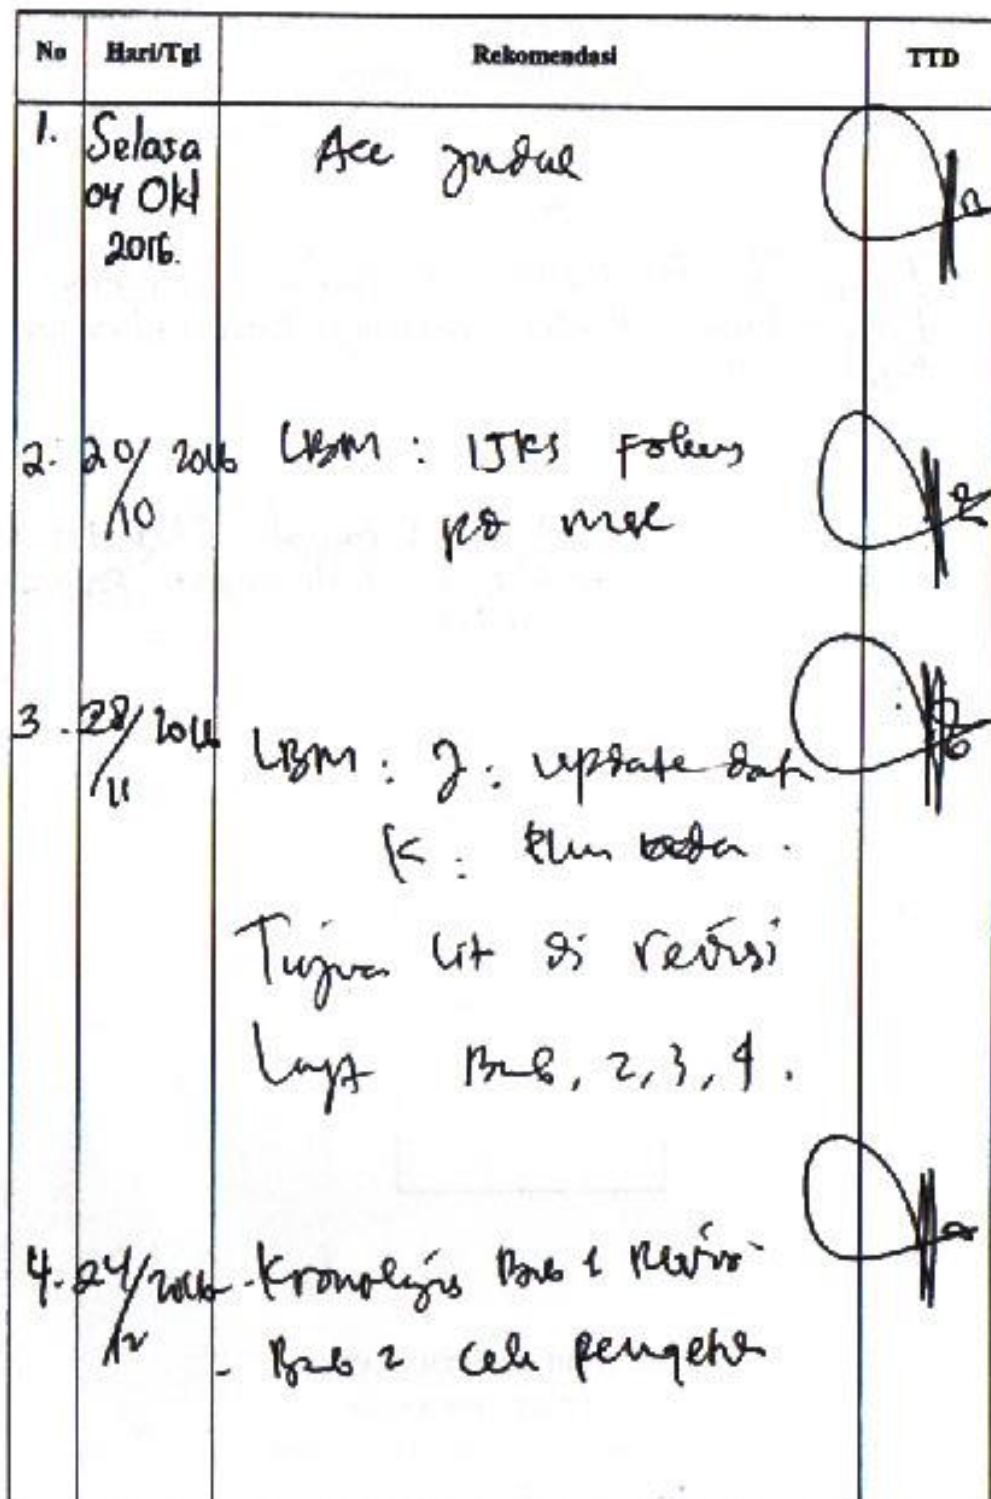 No Hari/Tgl Rekomendasi TTD
1. Selasa Acc judul
04 Okt
2016.
2. 20/10 2016 LBM : IJKS Fokus
pd msl
3. 28/11 2016
LBM : J : update data
K :
Tujuan lit di revisi
Lanjt Bab, 2, 3, 4.
4. 24/12 2016 - Kronologis Bab 1 Revisi
- Bab 2 cek pengetikan